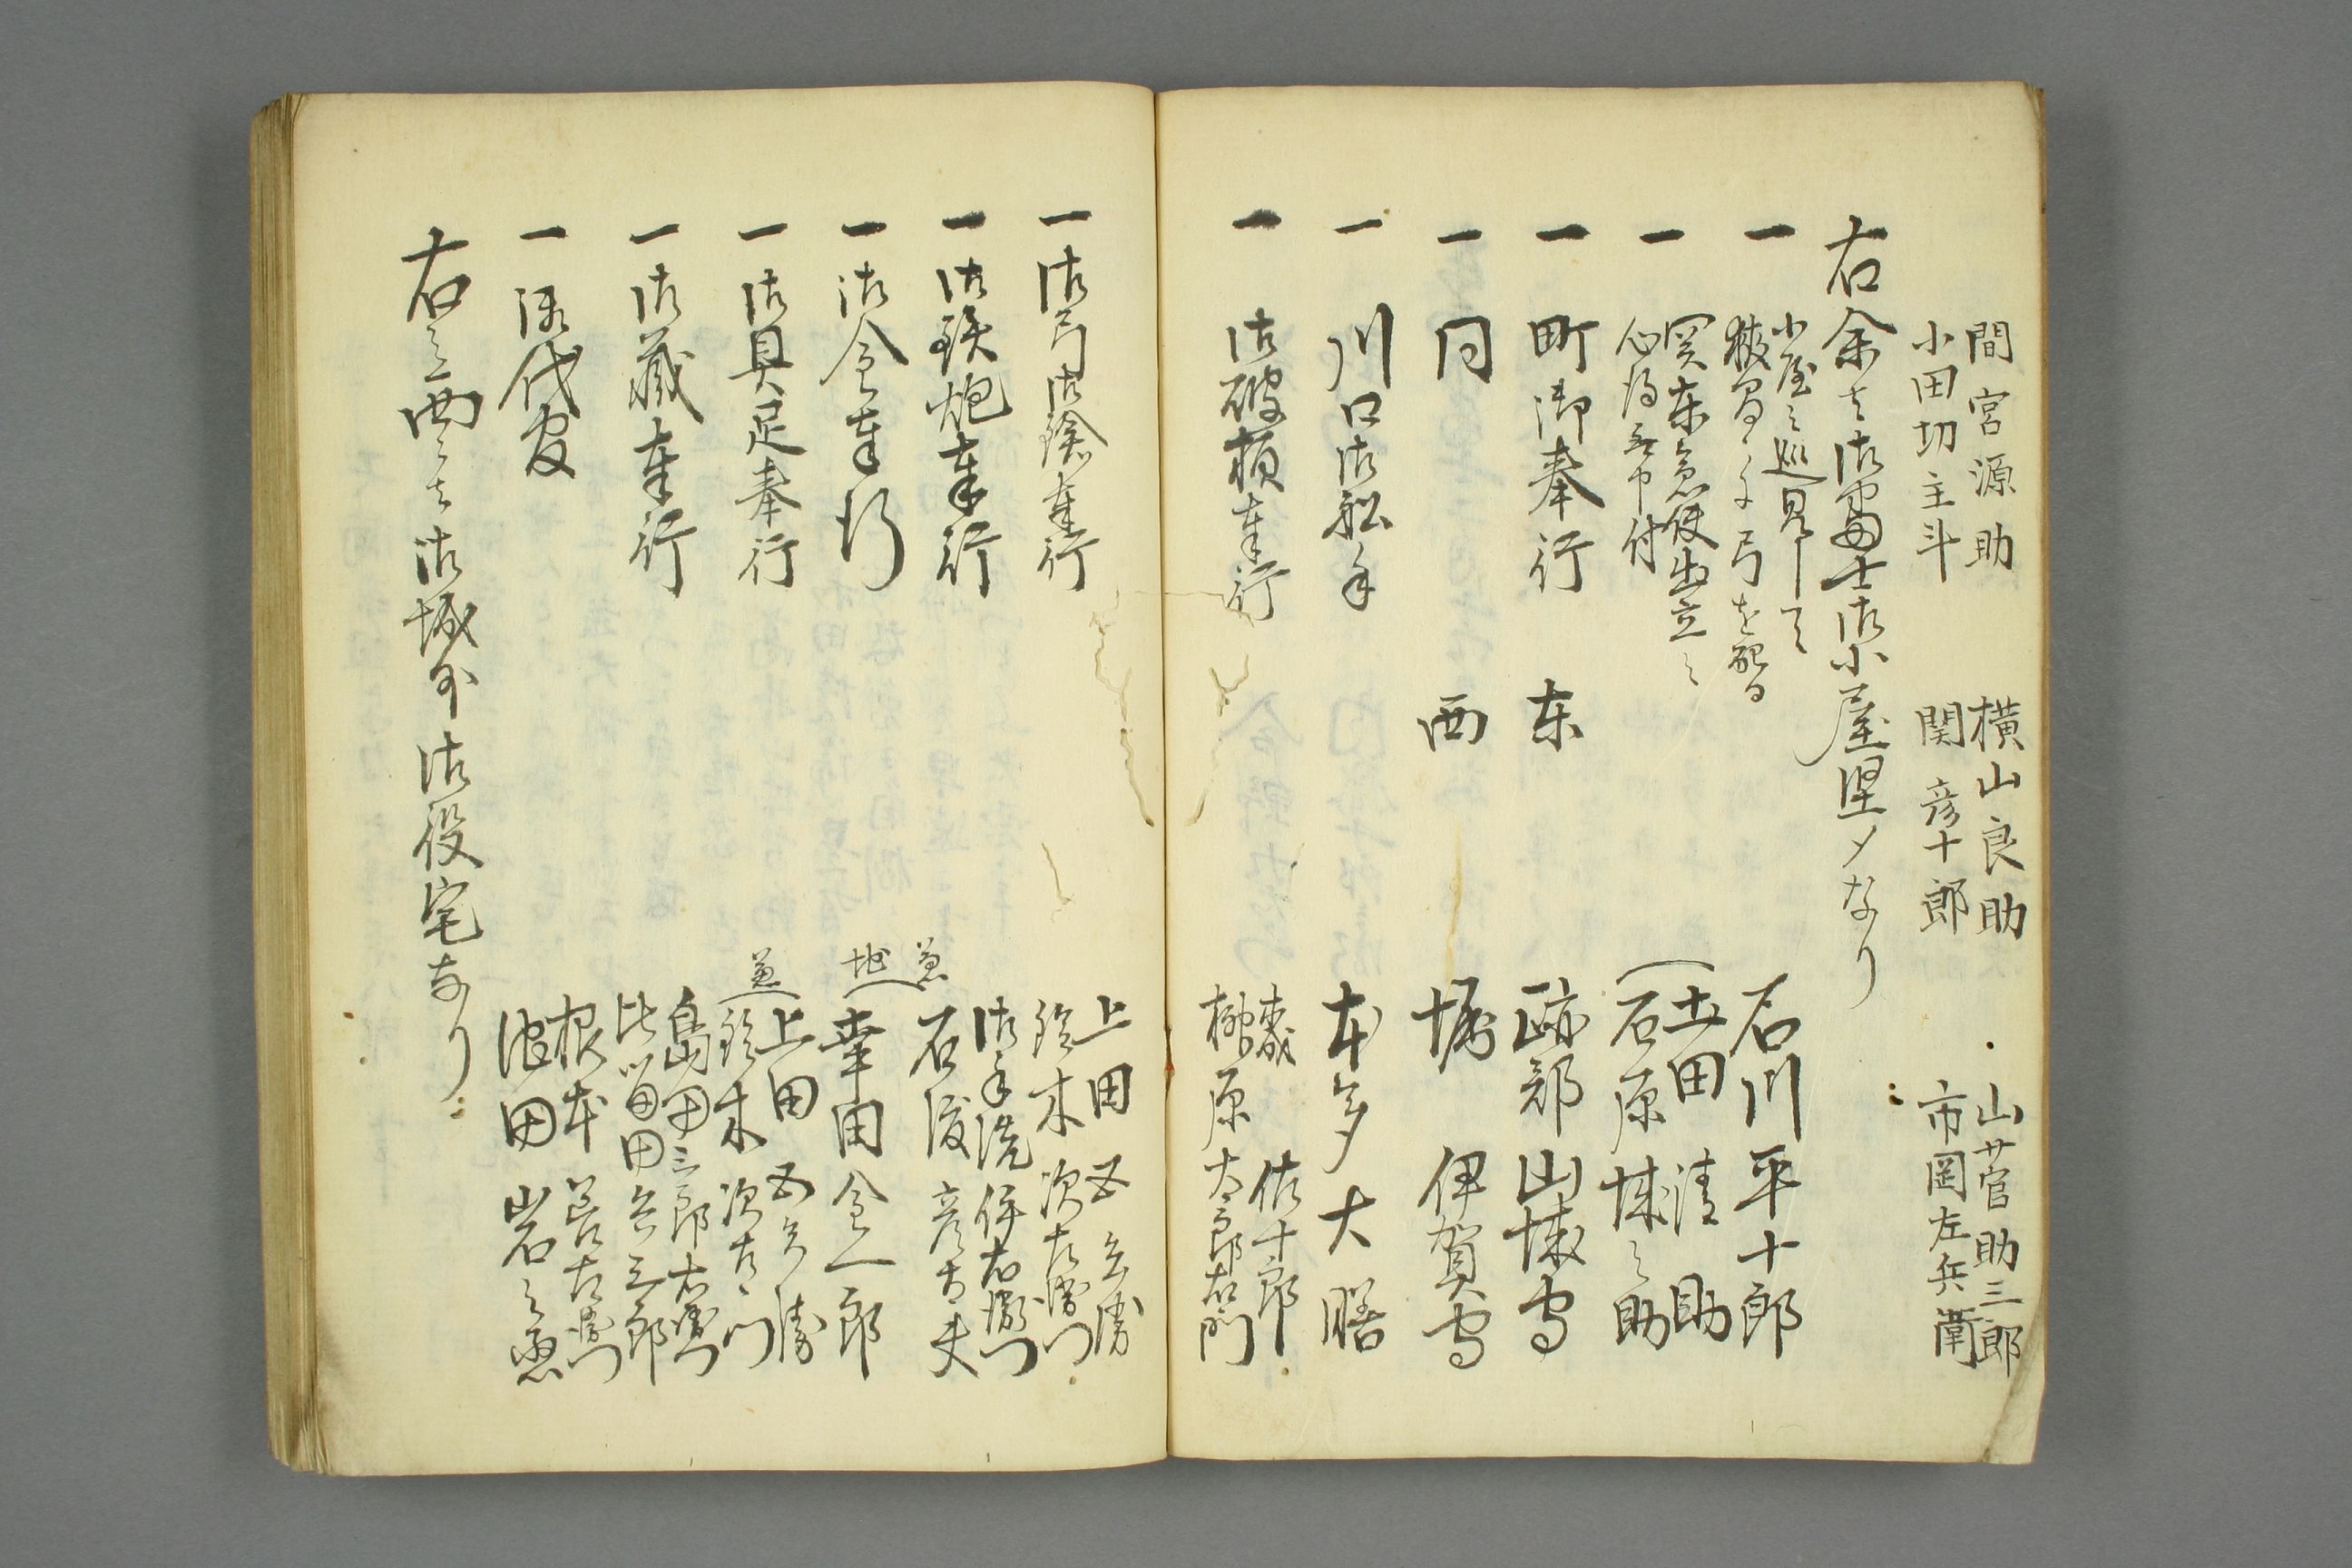 間宮源助　横山良助　山菅助三郎
小田切主斗　関彦十郎　市岡左兵衛
右余は御番士御小屋堅メなり
一　小屋之巡見
弓を配る　石川平十郎
一　関東急使出立之
心得 申付　土田清助
石原 之助
一　町御奉行　东　跡部山城守
一　同　西　堀伊賀守
一　川口御船手　本多大膳
一　御破損奉行　佐十郎
榊原太郎右衛門
一　御弓御鎗奉行　上田五兵衛
鈴木次左衛門
一　御鉄炮奉行　御手洗伊右衛門
石渡彦太夫
一　御金奉行　幸田金一郎
一　御具足奉行　上田五兵衛
鈴木次左衛門
一　御蔵奉行　島田三郎右衛門
比留田 三郎
一　御代官　根本善左衛門
池田岩之丞
右之西々は御城外御役宅なり